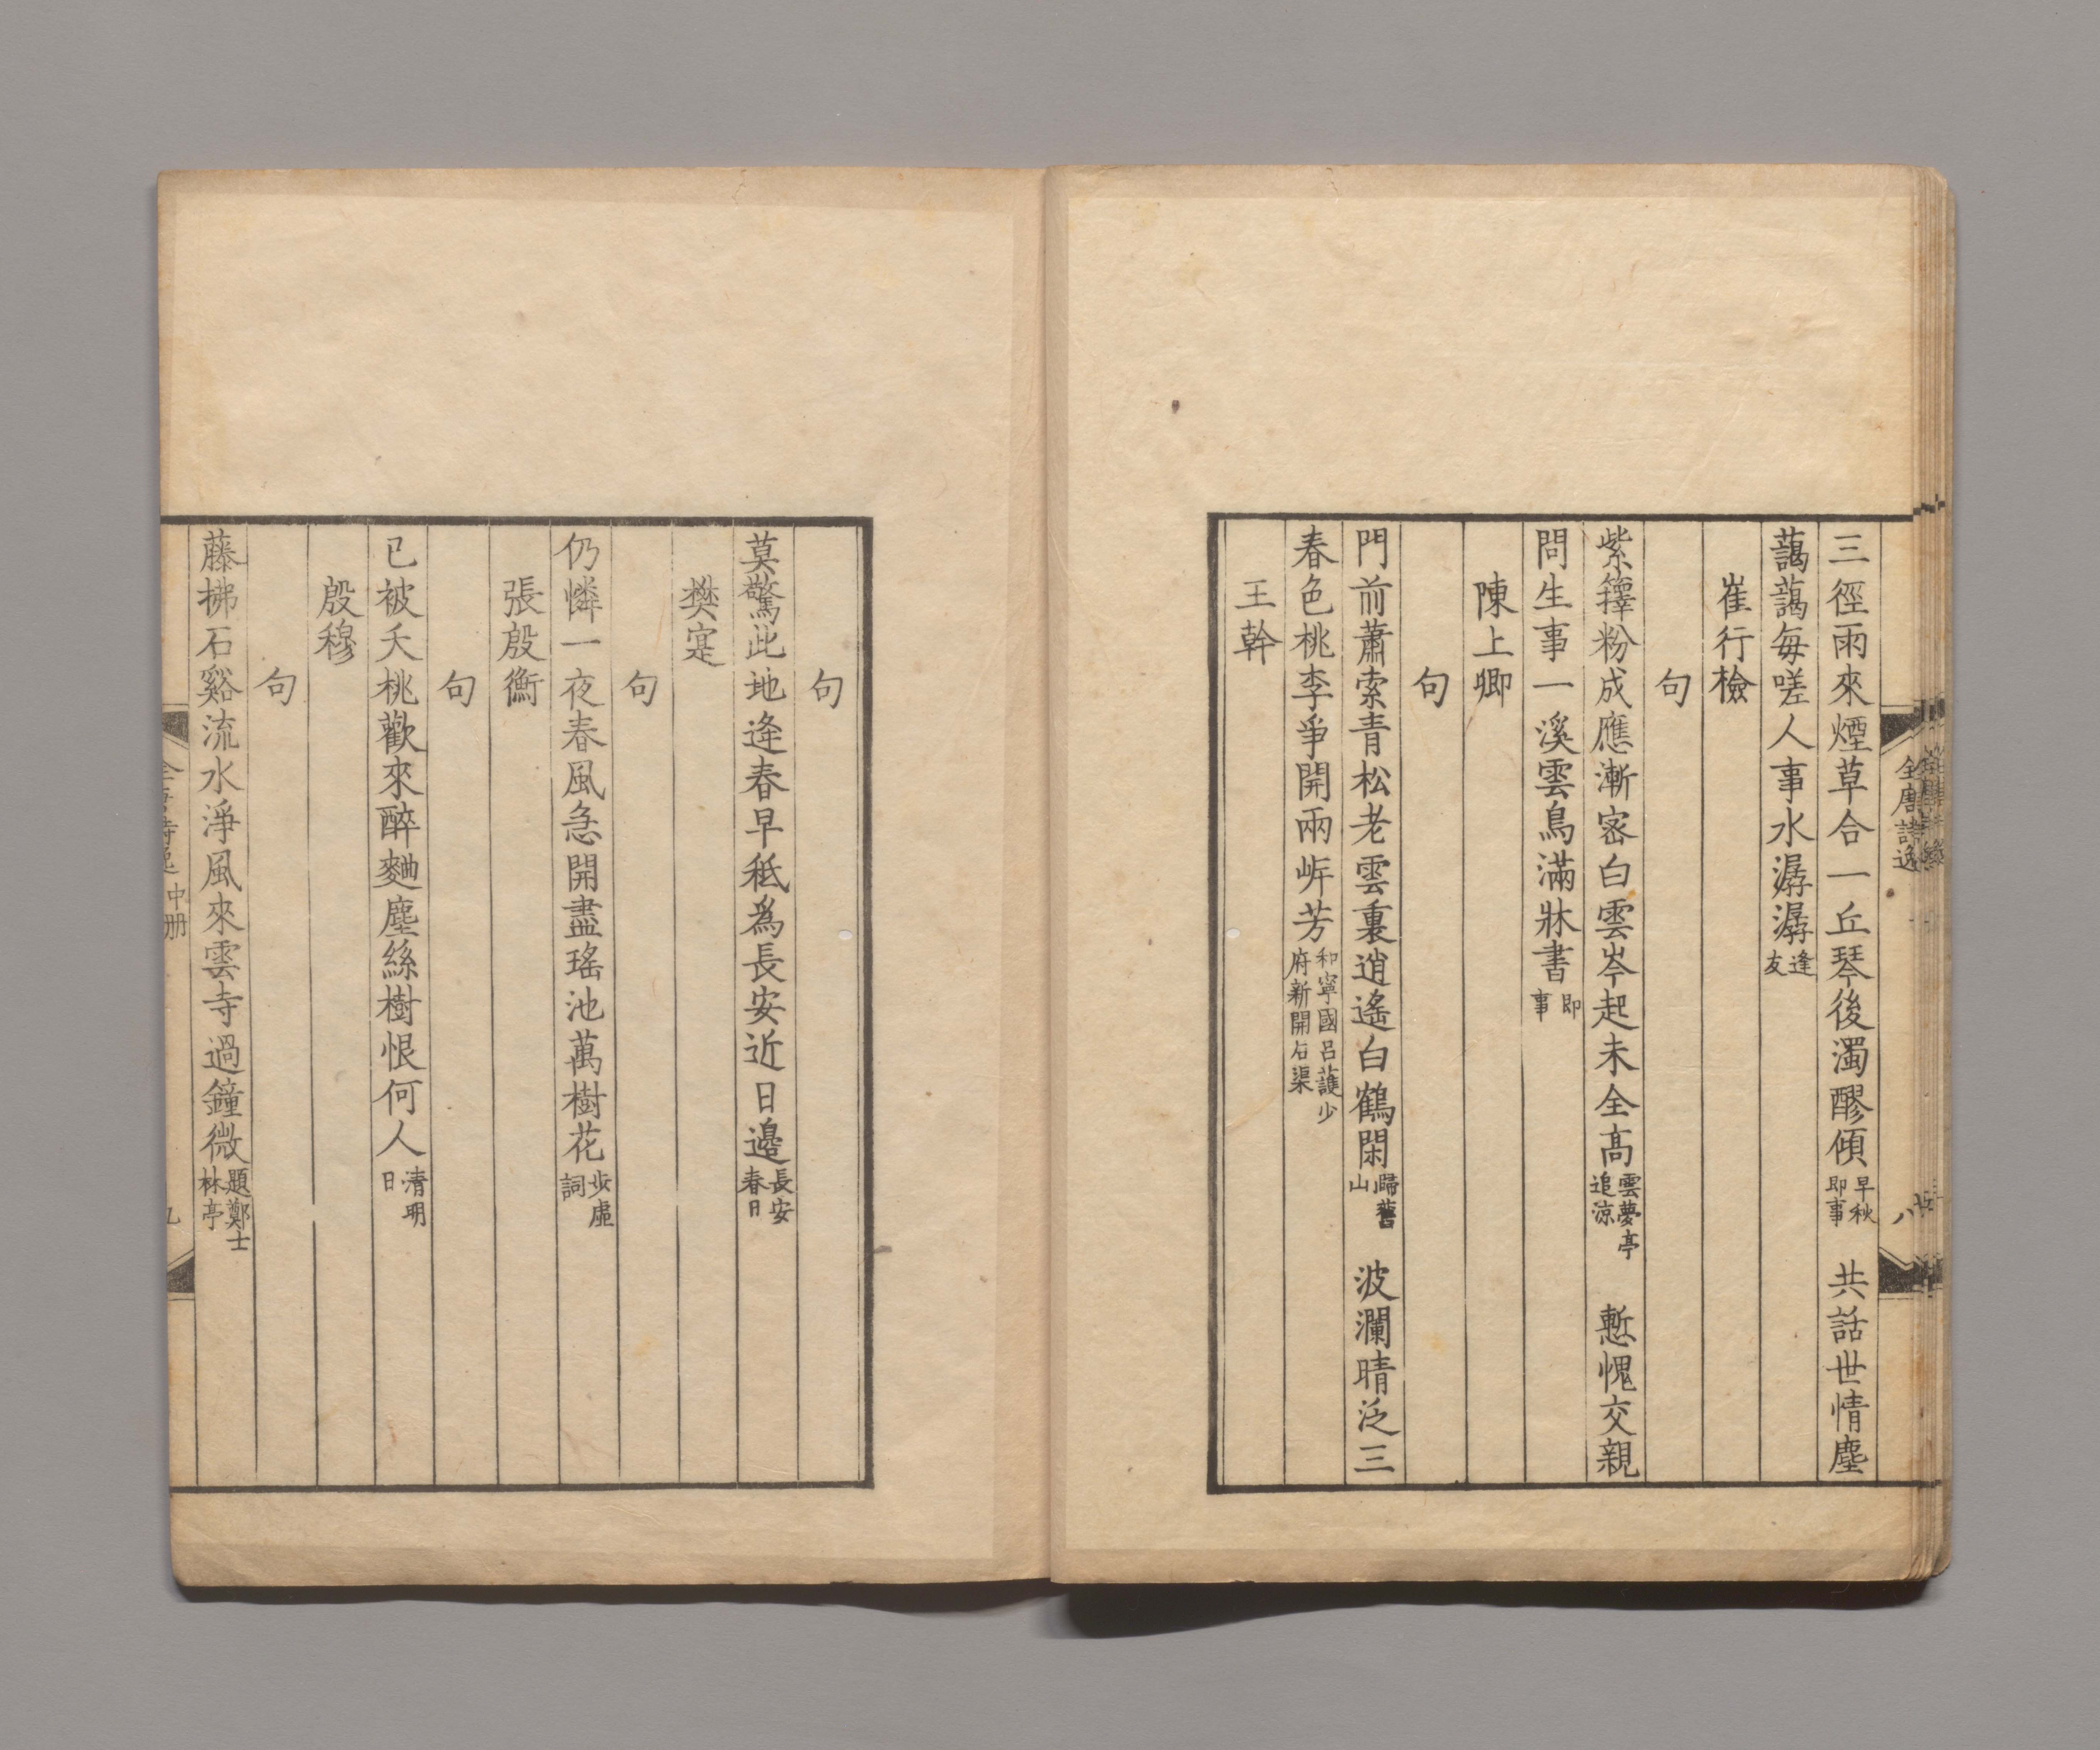 全唐詩逸
八
三徑雨來煙草合一丘琴後濁醪傾早秋即事 共話世情塵
藹藹每嗟人事水潺潺逢友
崔行檢
句
紫籜粉成應漸密白雲岑起未全高雲夢亭追涼 慙愧交親
問生事一溪雲鳥滿牀書即事
陳上卿
句
門前蕭索青松老雲裏逍遙白鶴閑歸舊山 波瀾晴泛三
春色桃李爭開兩岸芳和寧國呂護少府新開石渠
王幹
句
莫驚此地逢春早秪爲長安近日邊長安春日
樊寔
句
仍憐一夜春風急開盡瑤池萬樹花步虛詞
張殷衡
句
已被夭桃歡來醉麯塵絲樹恨何人清明日
殷穆
句
藤拂石谿流水淨風來雲寺過鐘微題鄭士林亭
中册
九